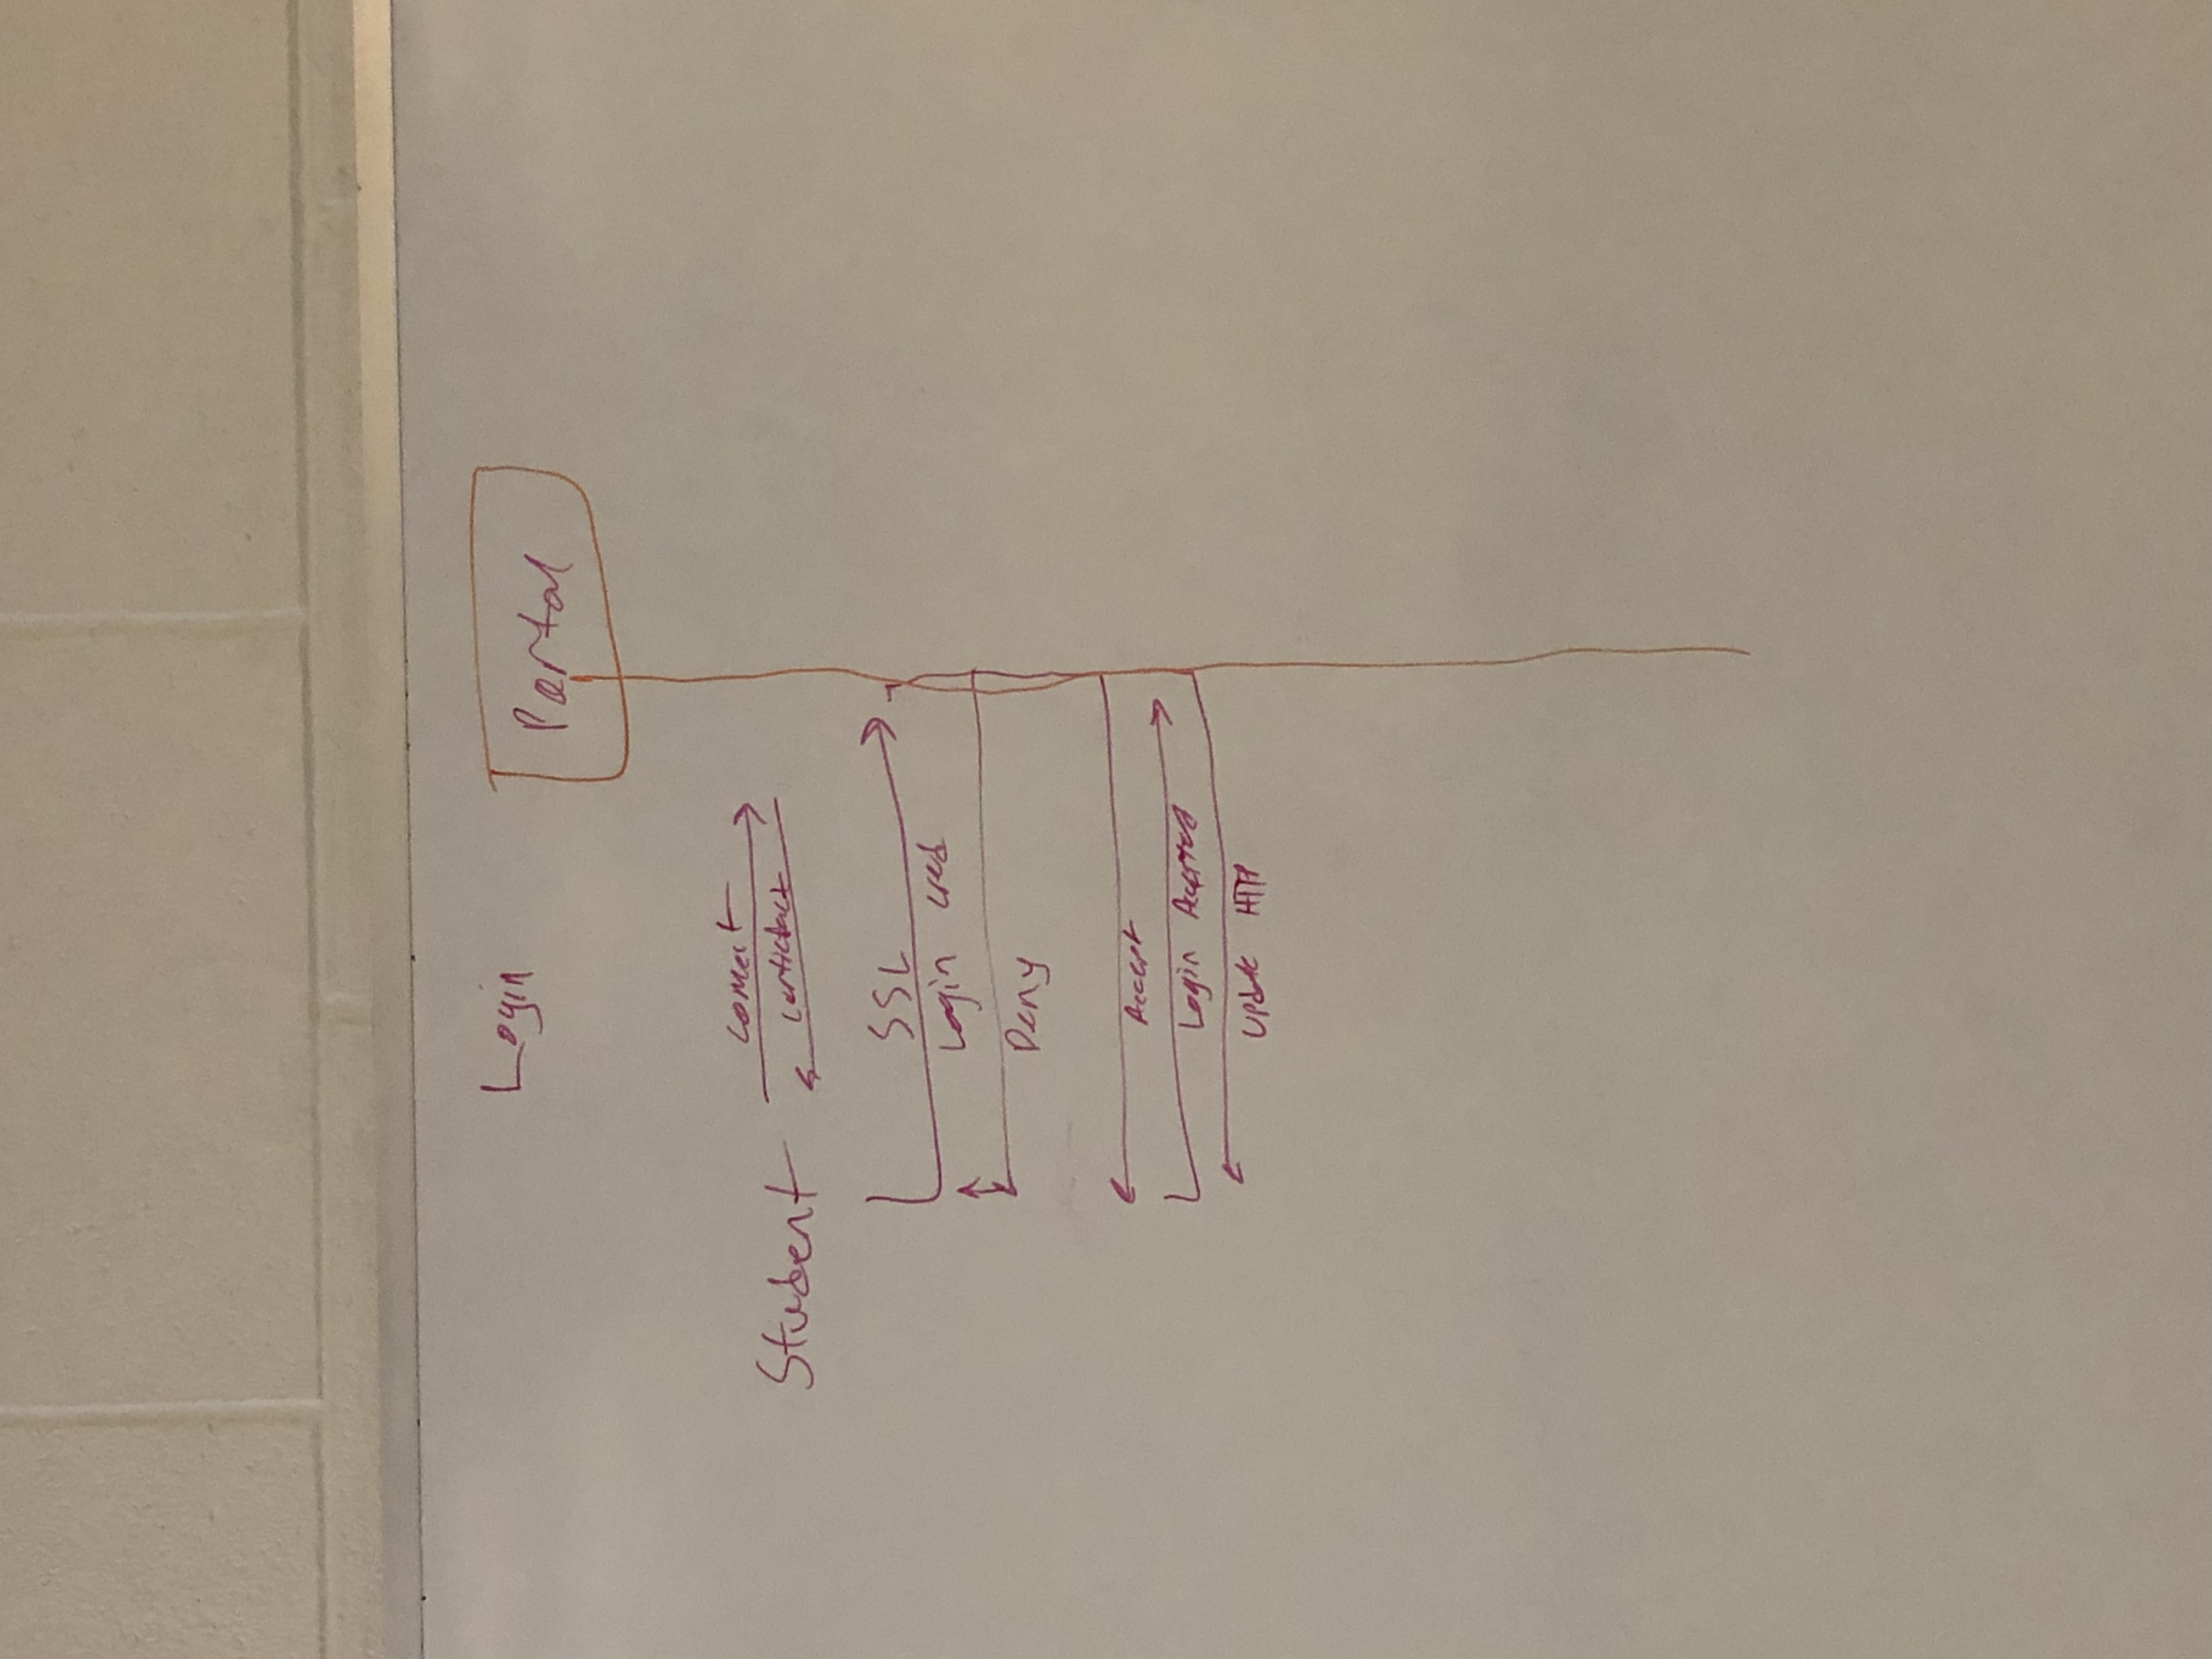 Login
Portal
Connect
Student
SSL
Login cred
Deny
Accept
Login Accepted
Update HTTP